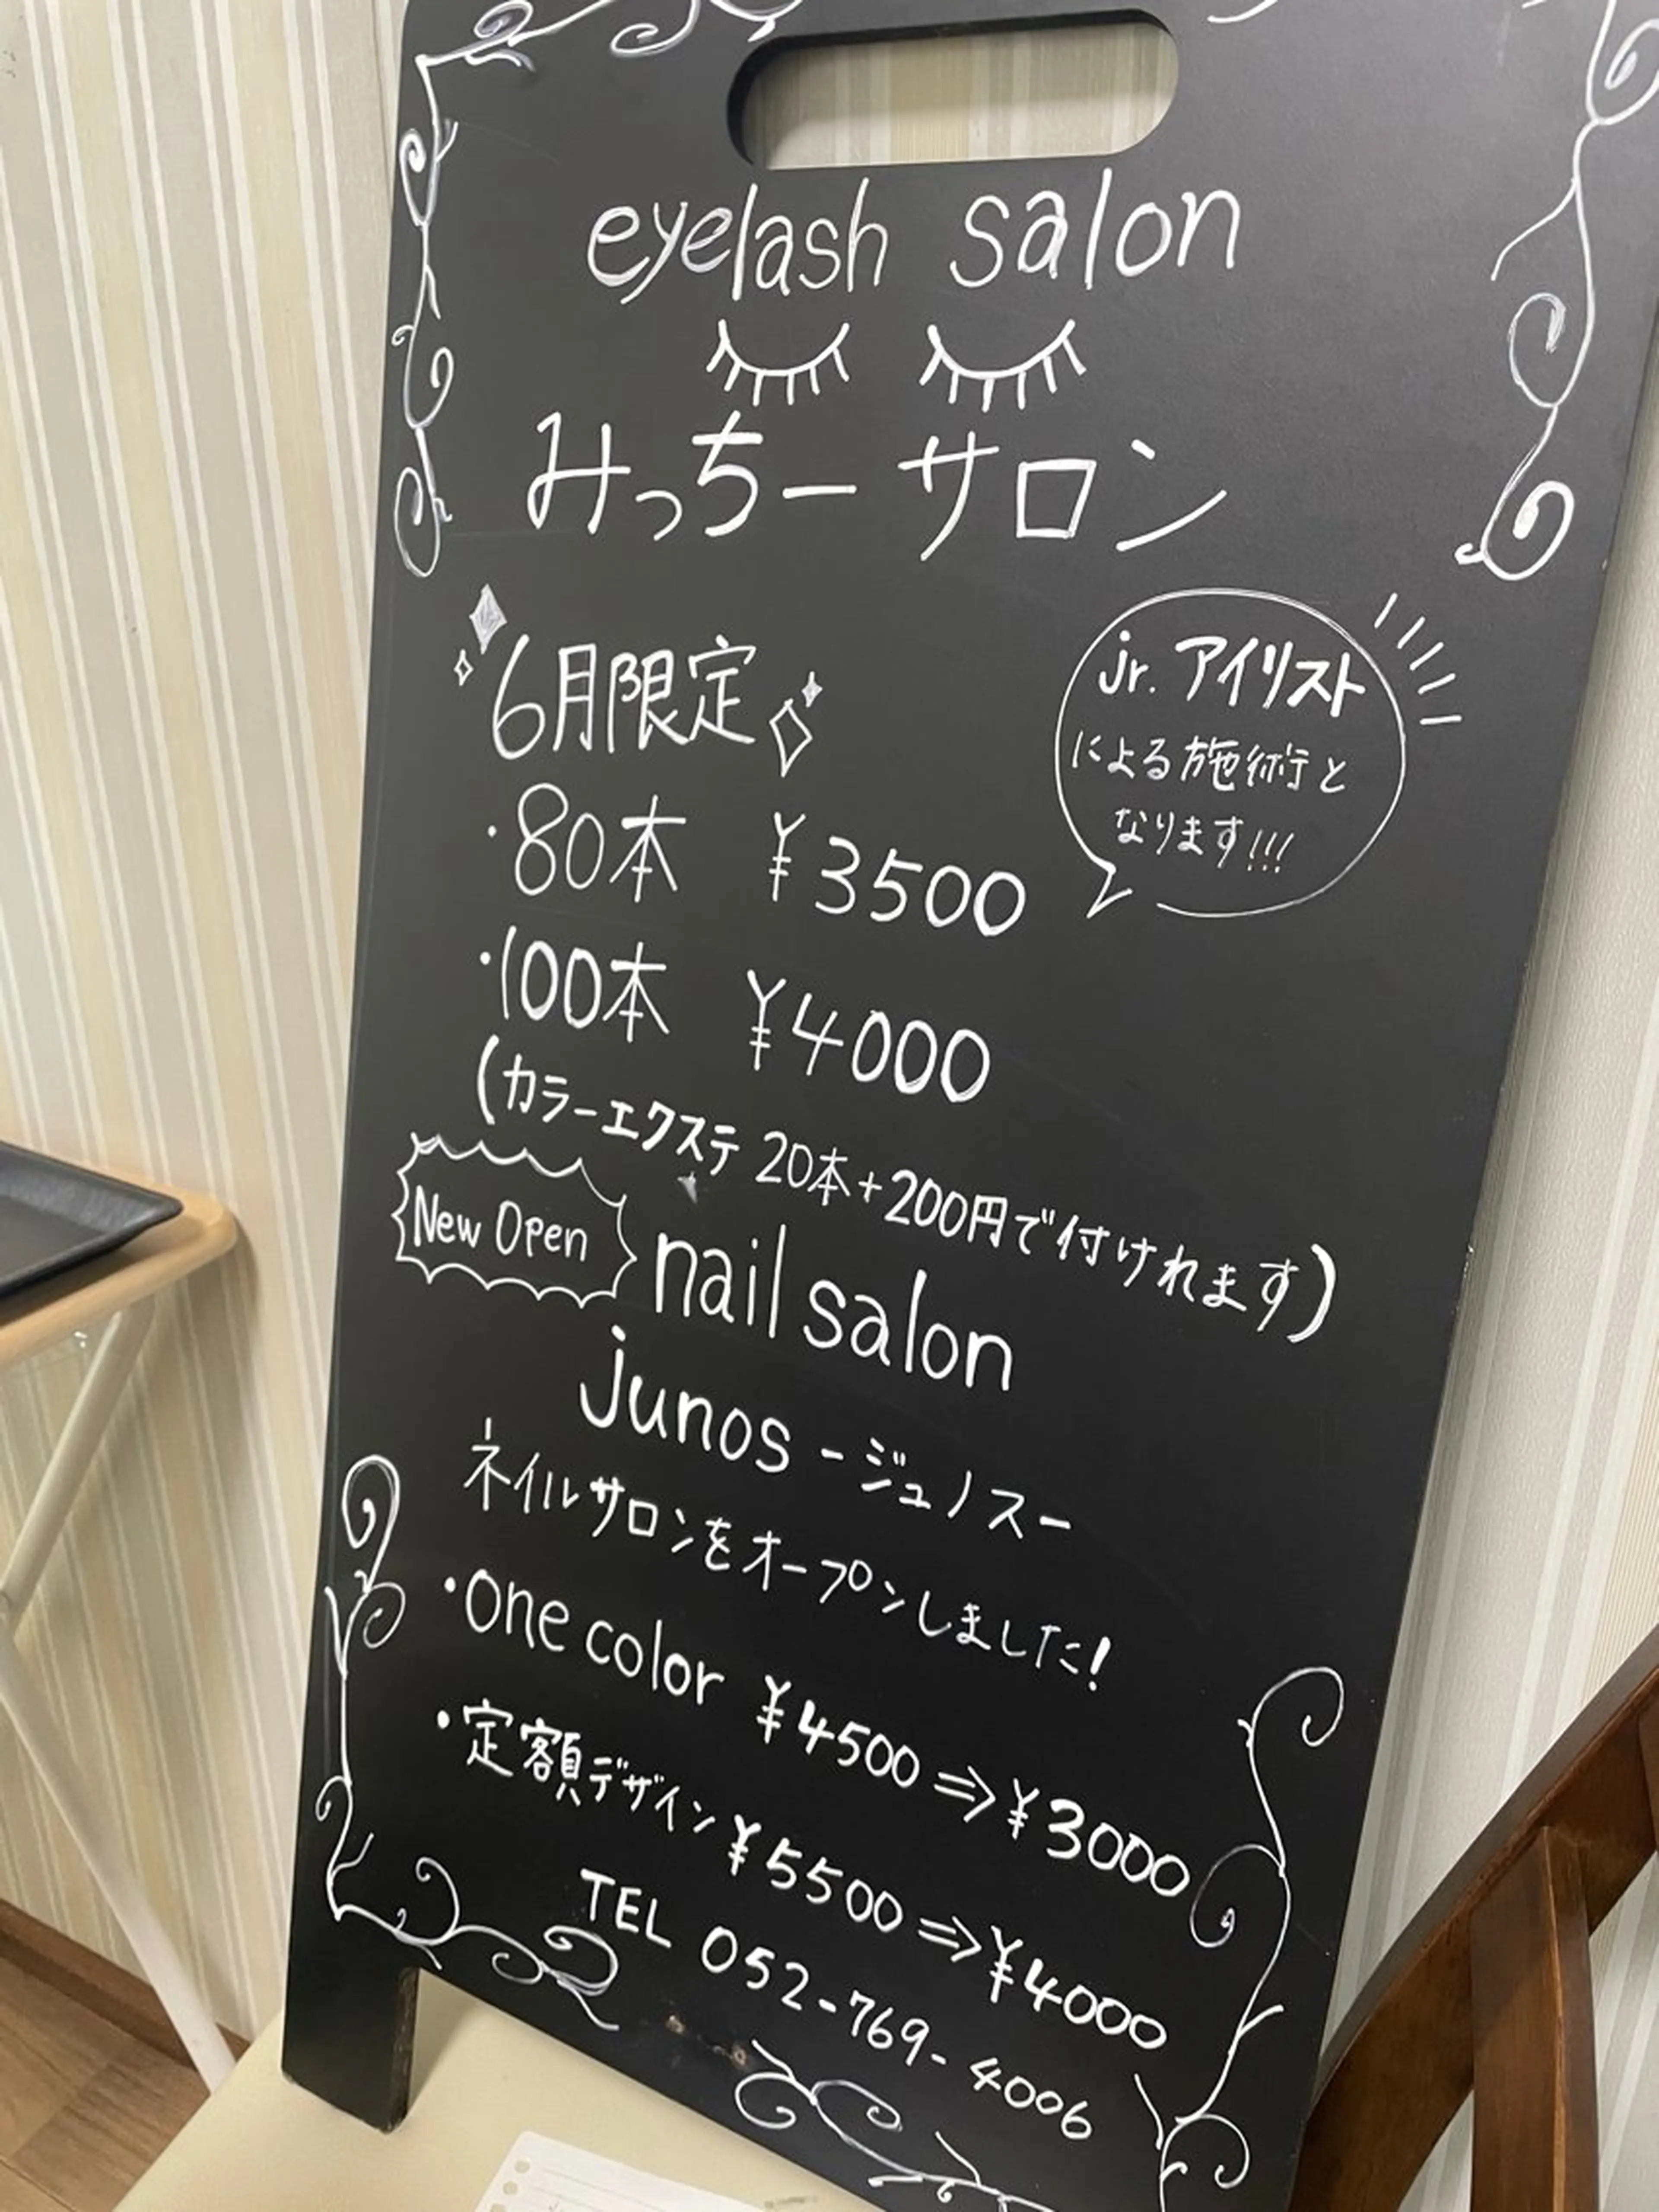 eyelash salon
みっちーサロン
6月限定
jr.アイリスト
による施術と
なります!!!
・80本 ¥3500
・100本 ¥4000
(カラーエクステ 20本+200円で付けれます)
New Open
nail salon
junos -ジュノスー
ネイルサロンをオープンしました!
・one color ¥4500⇒¥3000
・定額デザイン ¥5500⇒¥4000
TEL 052-769-4006